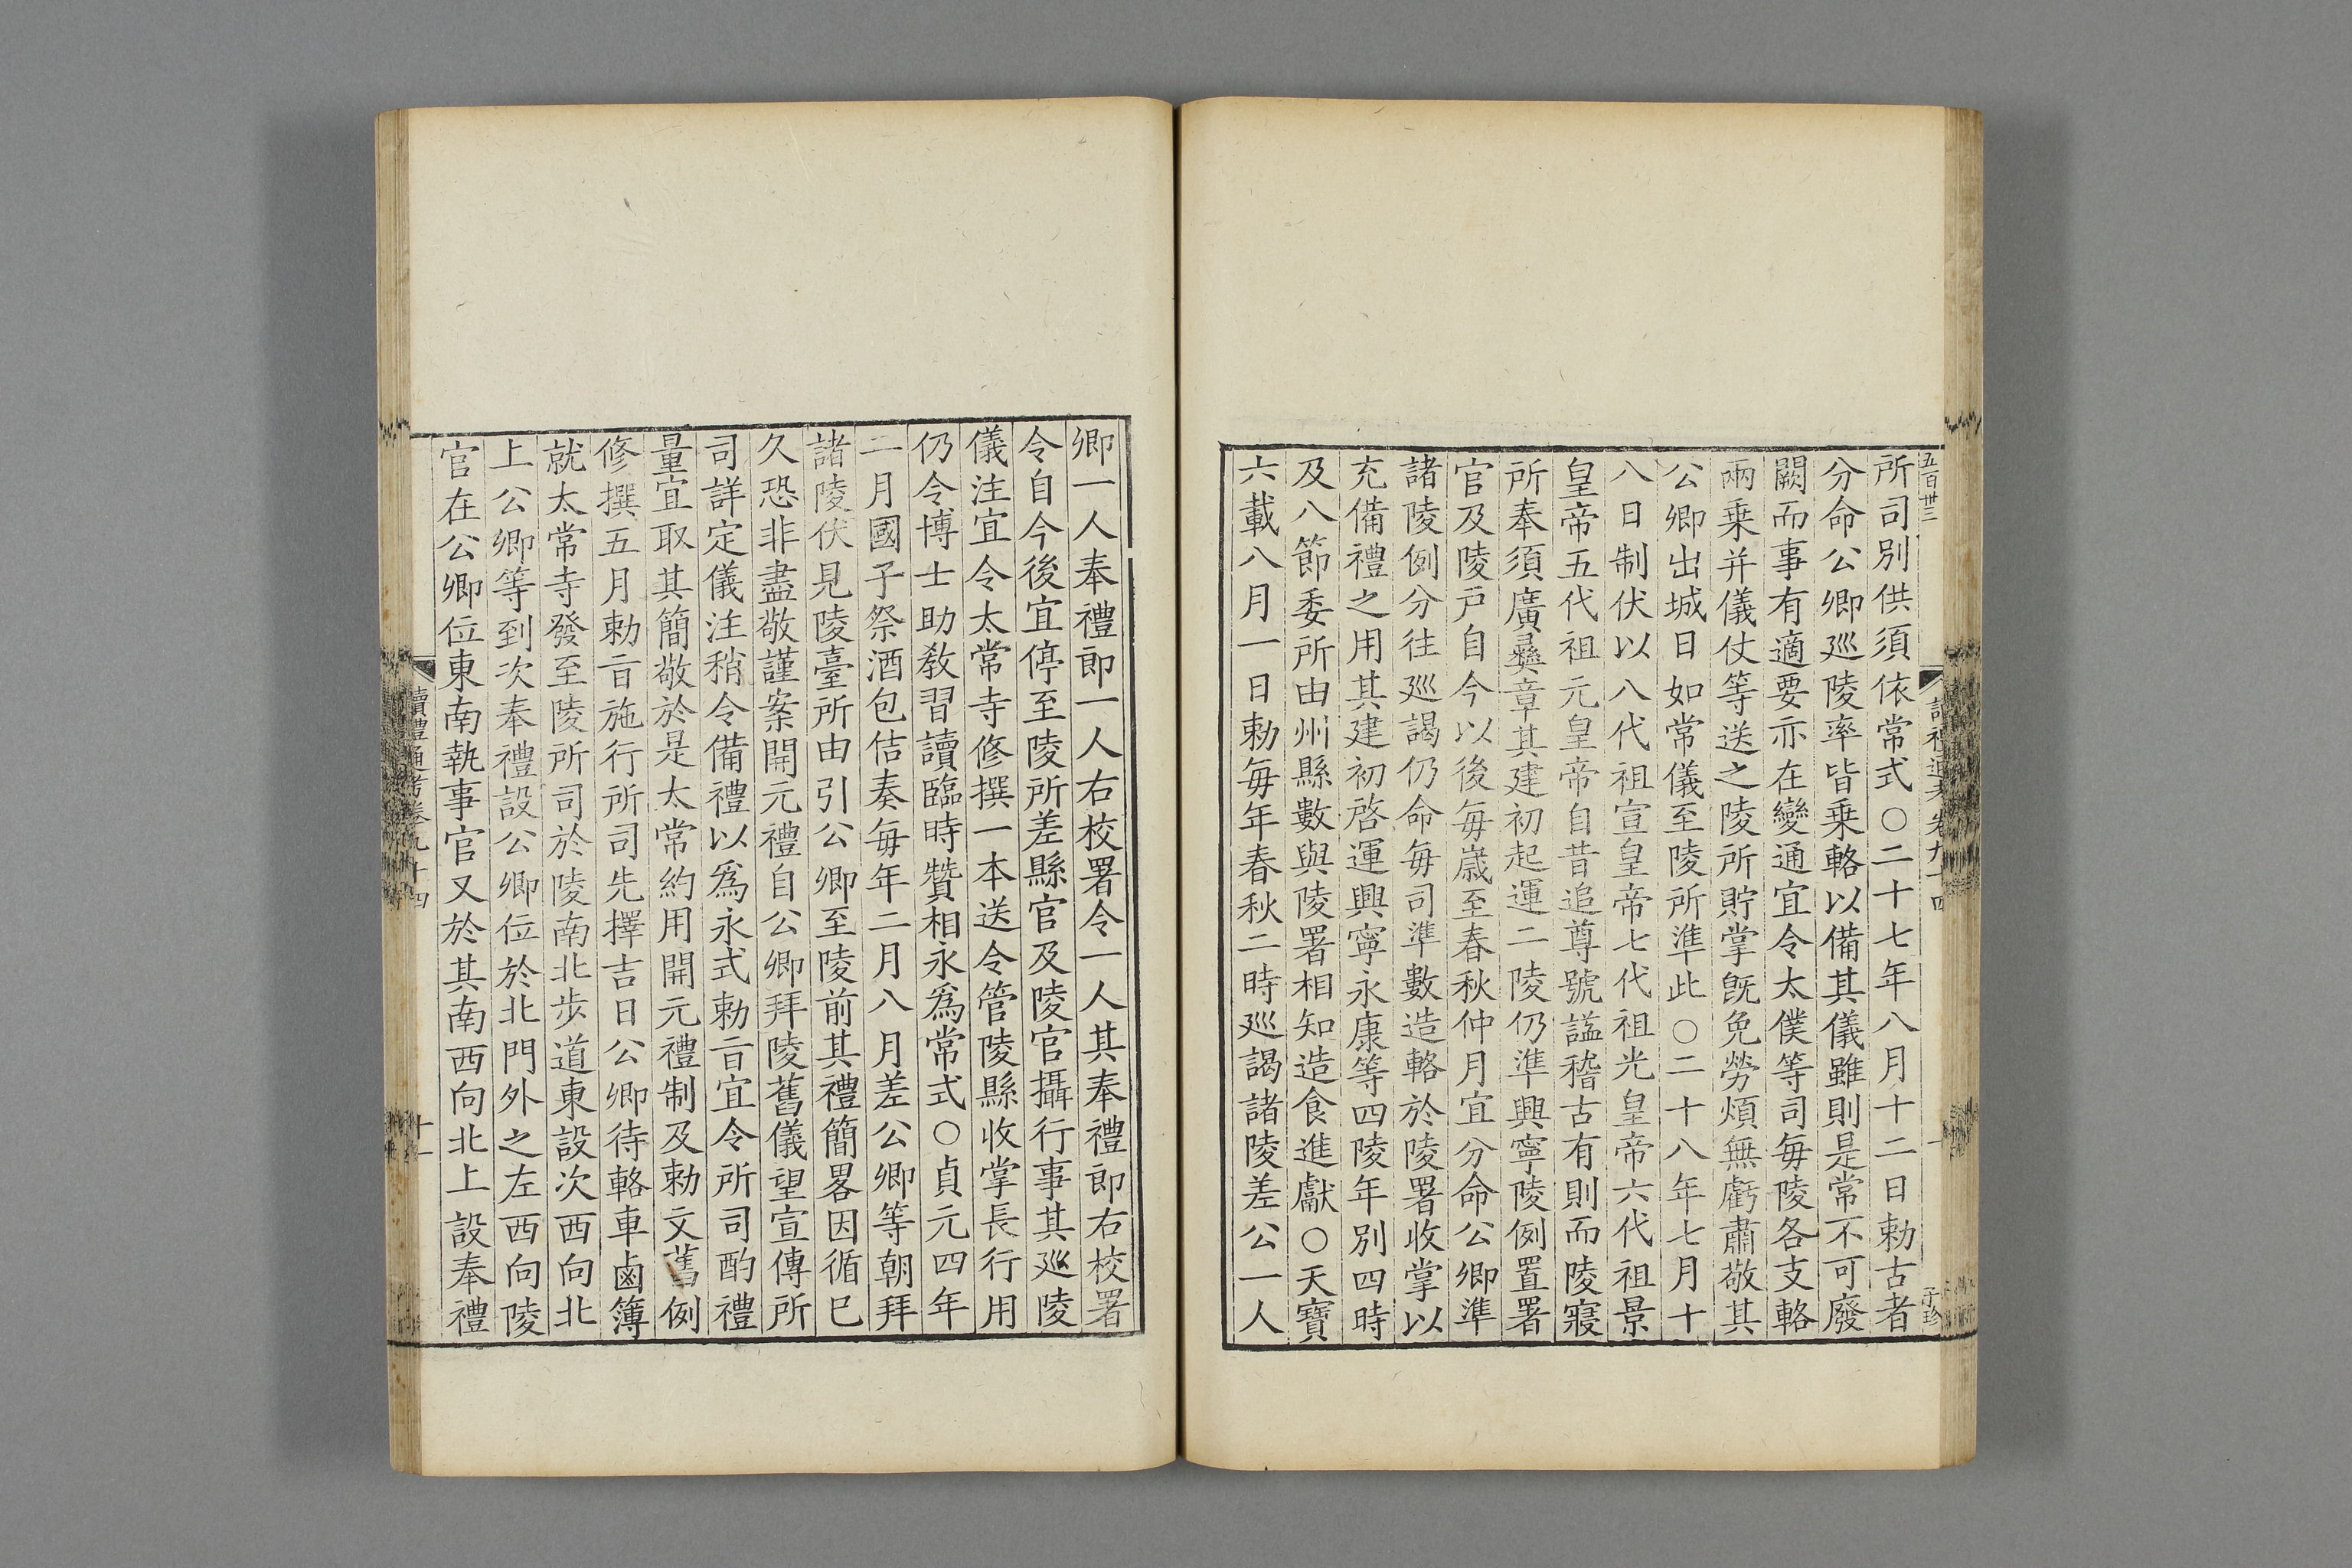 五百卅三
所司別供須依常式○二十七年八月十二日勅古者
分命公卿巡陵率皆乗輅以備其儀雖則是常不可廢
闕而事有適要亦在變通宜令太僕等司毎陵各支輅
兩乗并儀仗等送之陵所貯掌旣免勞煩無虧肅敬其
公卿出城日如常儀至陵所準此○二十八年七月十
八日制伏以八代祖宣皇帝七代祖光皇帝六代祖景
皇帝五代祖元皇帝自昔追尊號謚稽古有則而陵寢
所奉須廣彜章其建初起運二陵仍準興寧陵例置署
官及陵戸自今以後毎歲至春秋仲月宜分命公卿準
諸陵例分往巡謁仍命毎司準數造輅於陵署收掌以
充備禮之用其建初啓運興寧永康等四陵年別四時
及八節委所由州縣數與陵署相知造食進獻○天寶
六載八月一日勅毎年春秋二時巡謁諸陵差公一人
卿一人奉禮郎一人右校署令一人其奉禮郎右校署
令自今後宜停至陵所差縣官及陵官攝行事其巡陵
儀注宜令太常寺修撰一本送令管陵縣收掌長行用
仍令博士助敎習讀臨時贊相永爲常式○貞元四年
二月國子祭酒包佶奏毎年二月八月差公卿等朝拜
諸陵伏見陵臺所由引公卿至陵前其禮簡畧因循已
久恐非盡敬謹案開元禮自公卿拜陵舊儀望宣傳所
司詳定儀注稍令備禮以爲永式勅㫖宜令所司酌禮
量宜取其簡敬於是太常約用開元禮制及勅文舊例
修撰五月勅㫖施行所司先擇吉日公卿待輅車鹵簿
就太常寺發至陵所司於陵南北步道東設次西向北
上公卿等到次奉禮設公卿位於北門外之左西向陵
官在公卿位東南執事官又於其南西向北上設奉禮
讀禮通考卷九十四
十一